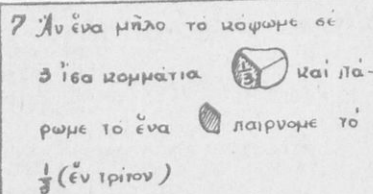 7 Ἄν ἕνα μῆλο τό κόψωμε σέ
3 ἴσα κομμάτια 1/3 καί πά-
ρωμε τό ἕνα παίρνομε τό
1/3 (ἕν τρίτον)